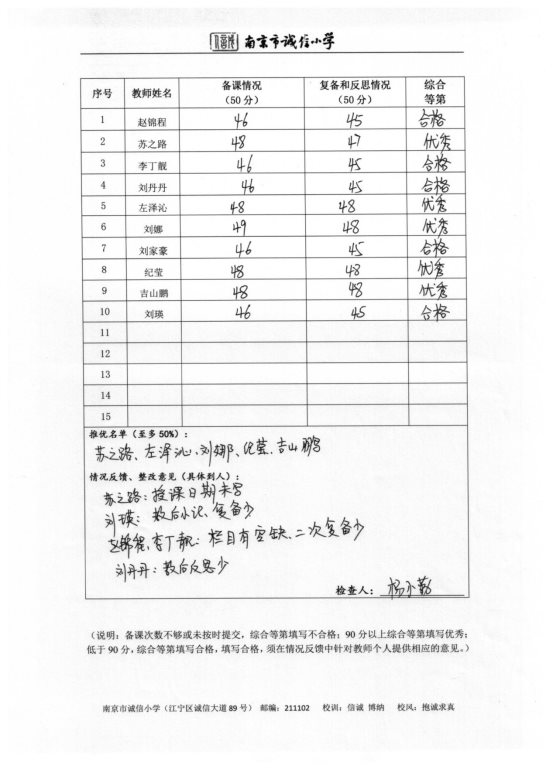 南京市诚信小学
序号 教师姓名 备课情况（50分） 复备和反思情况（50分） 综合等第
1 赵锦程 46 45 合格
2 苏之路 48 47 优秀
3 李丁靓 46 45 合格
4 刘丹丹 46 45 合格
5 左泽沁 48 48 优秀
6 刘娜 49 48 优秀
7 刘家豪 46 45 合格
8 纪莹 48 48 优秀
9 吉山鹏 48 48 优秀
10 刘瑛 46 45 合格
11
12
13
14
15
推优名单（至多50%）：
苏之路、左泽沁、刘娜、纪莹、吉山鹏
情况反馈、整改意见（具体到人）：
苏之路：授课日期未写
刘瑛：教后小记、复备少
赵锦程、李丁靓：栏目有空缺、二次复备少
刘丹丹：教后反思少
检查人：杨小勤
（说明：备课次数不够或未按时提交，综合等第填写不合格；90分以上综合等第填写优秀；
低于90分，综合等第填写合格，填写合格，须在情况反馈中针对教师个人提供相应的意见。）
南京市诚信小学（江宁区诚信大道89号） 邮编：211102 校训：信诚 博纳 校风：抱诚求真